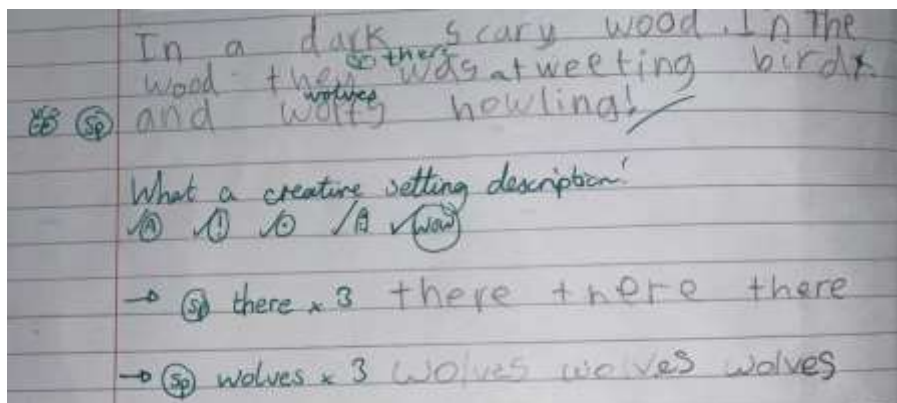 In a dark scary wood. In the
sp there
wood they was a tweeting birds
wolves
sp and wolfs howling!
What a creative setting description!
A ! . A wow
→ sp there x 3 there there there
→ sp wolves x 3 wolves wolves wolves